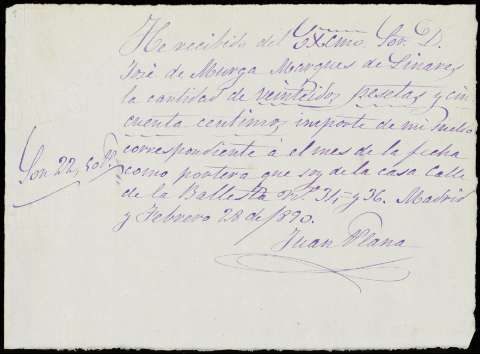 He recibido del Excmo. Sor. D.
José de Murga Marques de Linares
la cantidad de veintidos pesetas y cin
cuenta centimos importe de mi sueldo
correspondiente á el mes de la fecha
Son 22,50 Ps.
como portera que soy de la casa calle
de la Ballesta nº. 34 y 36. Madrid
y Febrero 28 de 1890.
Juan Plana